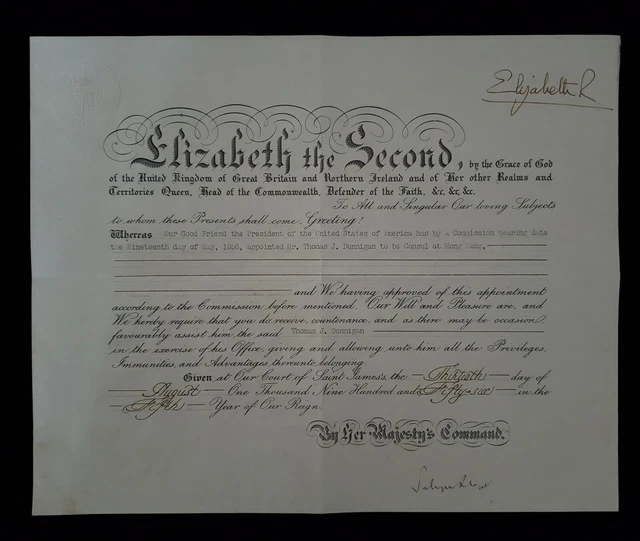 Elizabeth R
Elizabeth the Second, by the Grace of God
of the United Kingdom of Great Britain and Northern Ireland and of Her other Realms and
Territories Queen, Head of the Commonwealth, Defender of the Faith, &c, &c, &c.
To All and Singular Our loving Subjects
to whom these Presents shall come, Greeting!
Whereas Our Good Friend the President of the United States of America has by a Commission bearing date
the Nineteenth day of May, 1956, appointed Mr. Thomas J. Dunnigan to be Consul at Hong Kong,
and We having approved of this appointment
according to the Commission before mentioned, Our Will and Pleasure are, and
We hereby require that you do receive, countenance, and as there may be occasion,
favourably assist him the said Thomas J. Dunnigan
in the exercise of his Office, giving and allowing unto him all the Privileges,
Immunities, and Advantages thereunto belonging.
Given at Our Court of Saint James's, the Thirtieth day of
August One Thousand, Nine Hundred and Fifty-six in the
Fifth Year of Our Reign.
By Her Majesty's Command.
Selwyn Lloyd